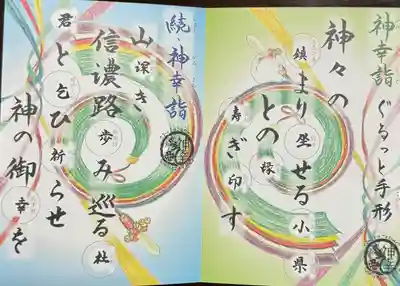 神幸詣 ぐるっと手形
神々の
鎮まり坐せる小県
との縁
寿ぎ印す
続・神幸詣
山深き
信濃路歩み巡る杜
君と乞ひ祈らせ
神の御幸を